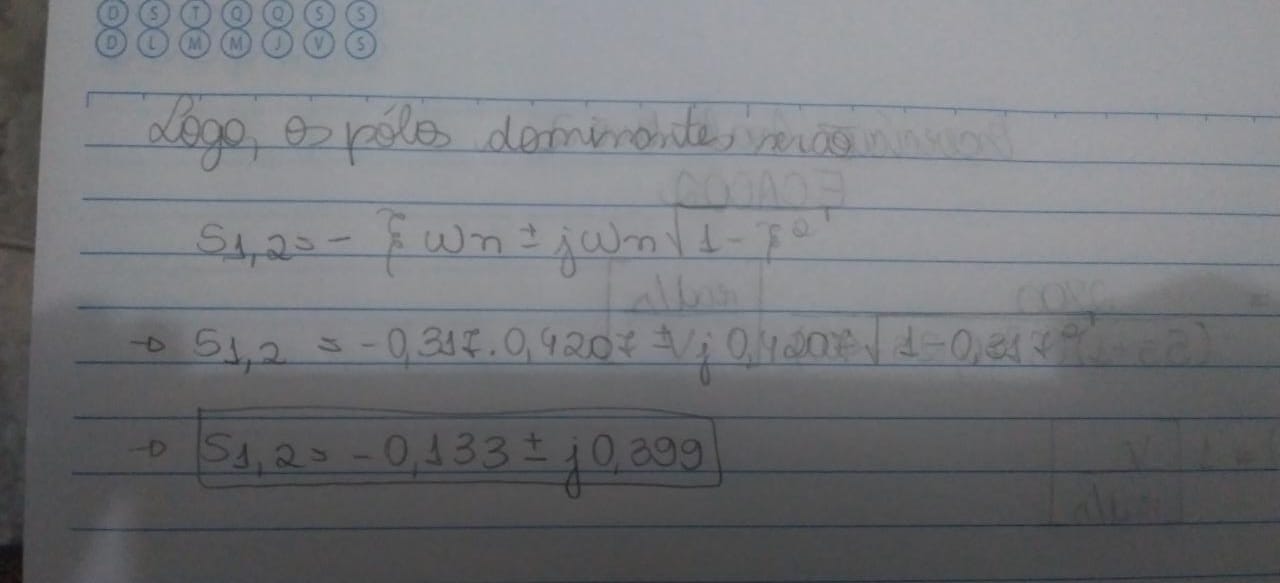 D S T Q Q S S
D L M M J V S
Logo, os pólos dominantes serão
S1,2 = - ξ ωn ± jωn√1 - ξ²
→ S1,2 = -0,317.0,4207 ± j 0,4207√1-0,317²
→ S1,2 = -0,133 ± j0,399